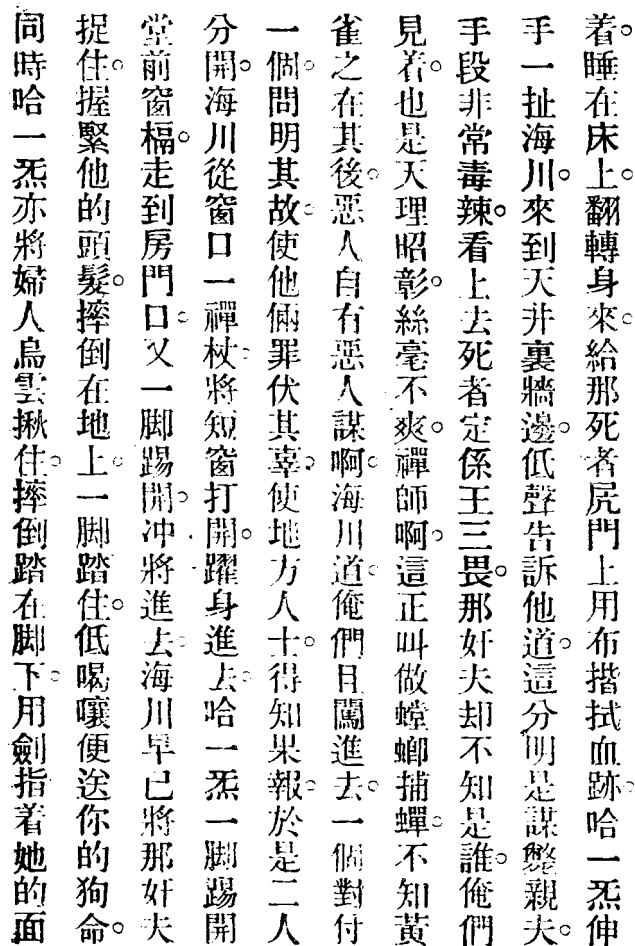 着。睡在床上。翻轉身來。給那死者尻門上用布揩拭血跡。哈一炁伸
手一扯海川。來到天井裏牆邊。低聲告訴他道。這分明是謀斃親夫。
手段非常毒辣。看上去死者定係王三畏。那奸夫却不知是誰。俺們
見着。也是天理昭彰。絲毫不爽。禪師啊。這正叫做螳螂捕蟬。不知黃
雀之在其後。惡人自有惡人謀啊。海川道。俺們且闖進去。一個對付
一個。問明其故。使他倆罪伏其辜。使地方人士。得知果報。於是二人
分開。海川從窗口一禪杖。將短窗打開。躍身進去。哈一炁一脚踢開
堂前窗槅。走到房門口。又一脚踢開。冲將進去。海川早已將那奸夫
捉住。握緊他的頭髮。摔倒在地上。一脚踏住。低喝嚷便送你的狗命。
同時哈一炁亦將婦人烏雲揪住。摔倒踏在脚下。用劍指着她的面